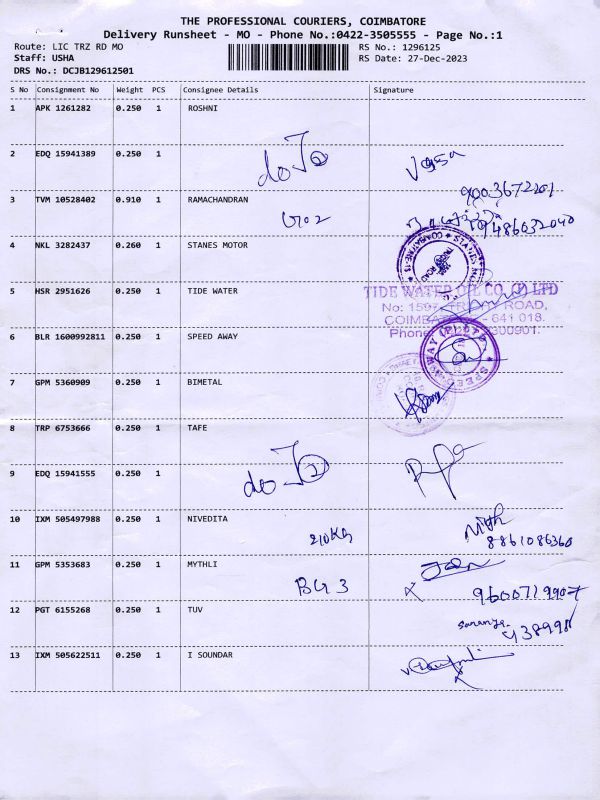 THE PROFESSIONAL COURIERS, COIMBATORE
Delivery Runsheet - MO - Phone No.:0422-3505555 - Page No.:1
Route: LIC TRZ RD MO
RS No.: 1296125
Staff: USHA
RS Date: 27-Dec-2023
DRS No.: DCJB129612501
S No Consignment No Weight PCS Consignee Details Signature
1 APK 1261282 0.250 1 ROSHNI
2 EDQ 15941389 0.250 1
9003672201
3 TVM 10528402 0.910 1 RAMACHANDRAN
9486032040
4 NKL 3282437 0.260 1 STANES MOTOR
5 HSR 2951626 0.250 1 TIDE WATER
TIDE WATER OIL CO. (I) LTD
6 BLR 1600992811 0.250 1 SPEED AWAY
7 GPM 5360909 0.250 1 BIMETAL
8 TRP 6753666 0.250 1 TAFE
9 EDQ 15941555 0.250 1
10 IXM 505497988 0.250 1 NIVEDITA
8861086360
11 GPM 5353683 0.250 1 MYTHLI
BG 3
9600719907
12 PGT 6155268 0.250 1 TUV
13 IXM 505622511 0.250 1 I SOUNDAR